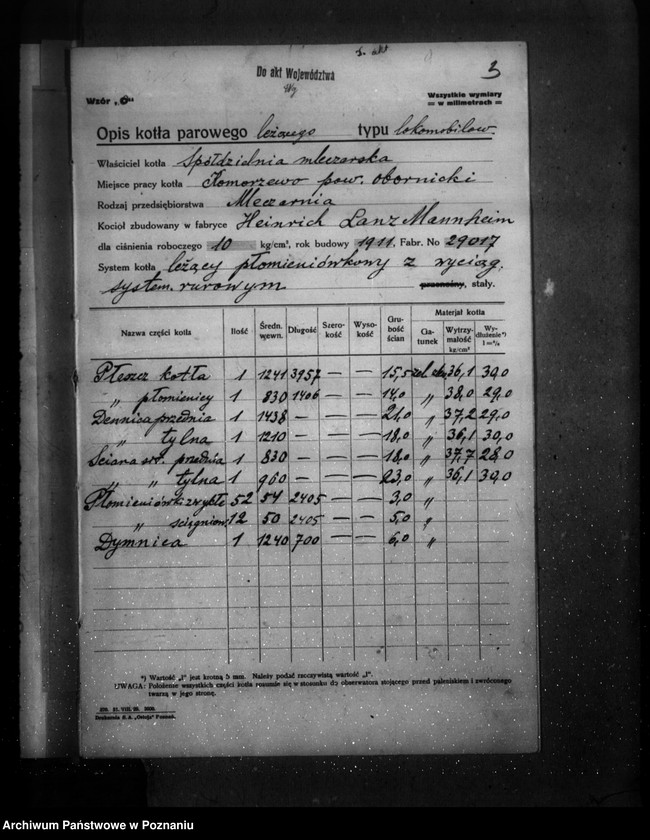 z. akt
Do akt Województwa
3
Wzór „C"
Wszystkie wymiary
= w milimetrach =
Opis kotła parowego leżącego typu lokomobilow.
Właściciel kotła Spółdzielnia mleczarska
Miejsce pracy kotła Komorzewo pow. obornicki
Rodzaj przedsiębiorstwa Mleczarnia
Kocioł zbudowany w fabryce Heinrich Lanz Mannheim
dla ciśnienia roboczego 10 kg/cm², rok budowy 1911. Fabr. No 29017
System kotła leżący płomieniówkowy z wyciąg.
system. rurowym przenośny, stały.
Nazwa części kotła Ilość Średn. wewn. Długość Szerokość Wysokość Grubość ścian Materjał kotła
Gatunek Wytrzymałość kg/cm² Wydłużenie*) l=%
Płaszcz kotła 1 1241 3957 — — 15,5 36,1 30,0
„ płomienicy 1 830 1406 — — 14,0 „ 38,0 29,0
Dennica przednia 1 1438 — — — 21,0 „ 37,2 29,0
„ tylna 1 1210 — — — 18,0 „ 36,1 30,0
Ściana sit. przednia 1 830 — — — 18,0 „ 37,7 28,0
„ „ tylna 1 960 — — — 23,0 „ 36,1 30,0
Płomieniówki zwykłe 52 54 2405 — — 3,0 „
„ ściągniow. 12 50 2405 — — 5,0 „
Dymnica 1 1240 700 — — 6,0 „
*) Wartość „l" jest krotną 5 mm. Należy podać rzeczywistą wartość „l".
UWAGA: Położenie wszystkich części kotła rozumie się w stosunku do obserwatora stojącego przed paleniskiem i zwróconego
twarzą w jego stronę.
Drukarnia S. A. „Ostoja" Poznań.
Archiwum Państwowe w Poznaniu